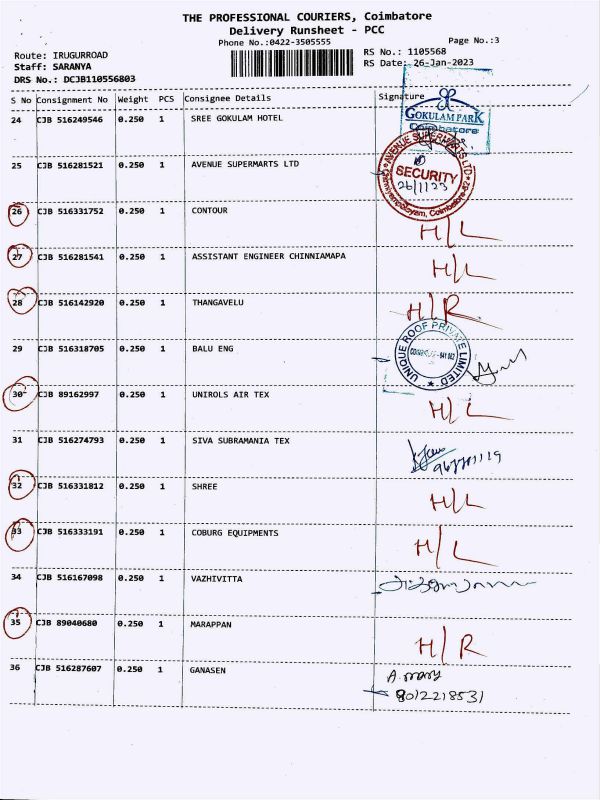 THE PROFESSIONAL COURIERS, Coimbatore
Delivery Runsheet - PCC
Phone No.:0422-3505555
Page No.:3
Route: IRUGURROAD
RS No.: 1105568
Staff: SARANYA
RS Date: 26-Jan-2023
DRS No.: DCJB110556803
S No Consignment No Weight PCS Consignee Details Signature
24 CJB 516249546 0.250 1 SREE GOKULAM HOTEL
GOKULAM PARK
Coimbatore
25 CJB 516281521 0.250 1 AVENUE SUPERMARTS LTD
AVENUE SUPERMARTS LTD
SECURITY
26/1/23
26 CJB 516331752 0.250 1 CONTOUR H/L
27 CJB 516281541 0.250 1 ASSISTANT ENGINEER CHINNIAMAPA H/L
28 CJB 516142920 0.250 1 THANGAVELU H/R
29 CJB 516318705 0.250 1 BALU ENG
UNIQUE ROOF PRIVATE LIMITED
30 CJB 89162997 0.250 1 UNIROLS AIR TEX H/L
31 CJB 516274793 0.250 1 SIVA SUBRAMANIA TEX
32 CJB 516331812 0.250 1 SHREE H/L
33 CJB 516333191 0.250 1 COBURG EQUIPMENTS H/L
34 CJB 516167098 0.250 1 VAZHIVITTA
35 CJB 89040680 0.250 1 MARAPPAN H/R
36 CJB 516287607 0.250 1 GANASEN A. mary
8012218531